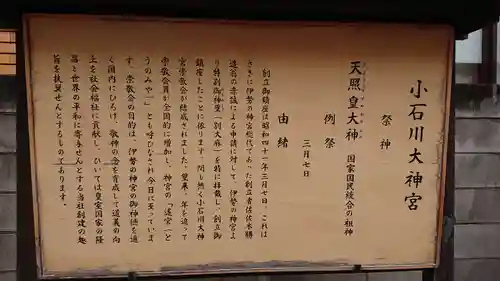 小石川大神宮
祭神
天照皇大神 国家国民統合の祖神
例祭
三月七日
由緒
創立御鎮座は昭和四十一年三月七日、これは
さきに伊勢の神宮総代であった創立者佐佐木勝
造翁の赤誠による申請に対して、伊勢の神宮よ
り特別御神璽(別大麻)を特に拝戴し、創立御
鎮座したことに依ります。間も無く小石川大神
宮崇敬会が結成されました。爾来、年を追って
崇敬会員が全国的に増加し、神宮の「遙宮」と
うのみや―」とも呼びならされ今日に至っていま
す。崇敬会の目的は、伊勢の神宮の御神徳を遍
く国内にひろげ、敬神の念を育成して道義の向
上を社会福祉に貢献し、ひいては皇室国家の隆
昌と世界の平和に寄与せんとする当社創建の趣
旨を扶翼せんとするものであります。